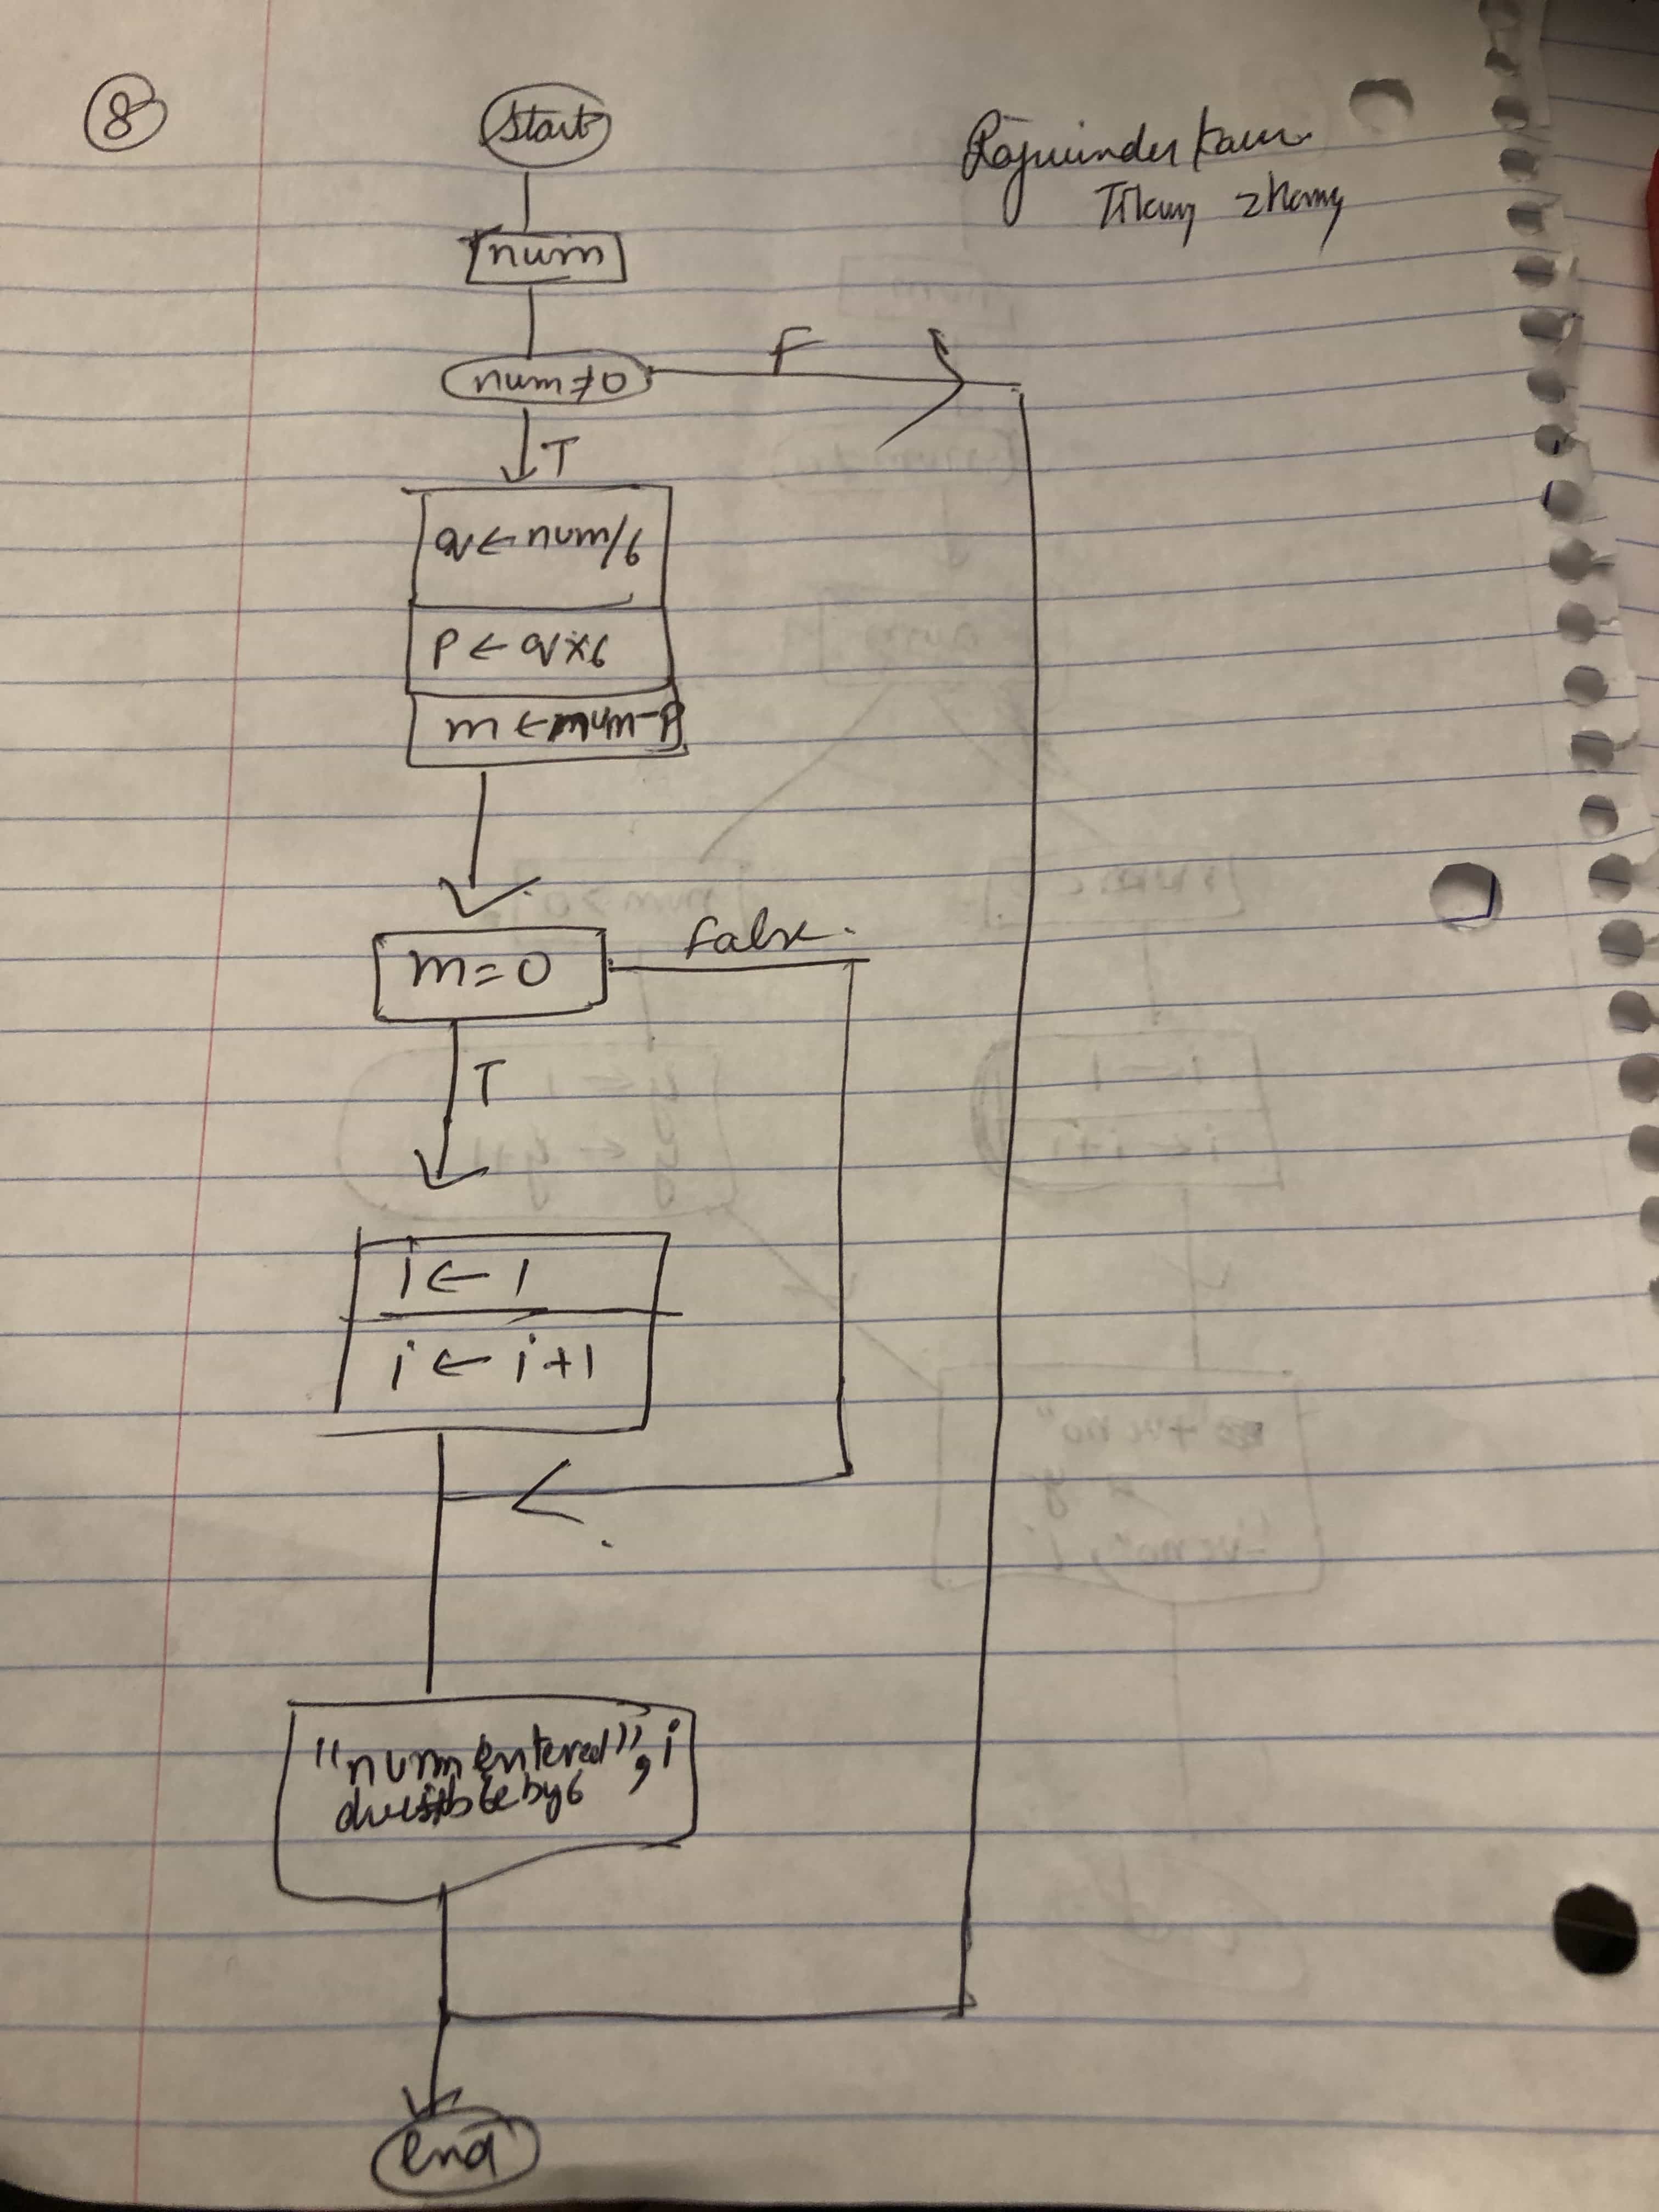 8
Start
Rajwinder Kaur
num
num≠0
F
T
q←num/6
p←q×6
m←num-p
m=0
False.
T
i←1
i←i+1
"num entered", i
divisible by 6
end